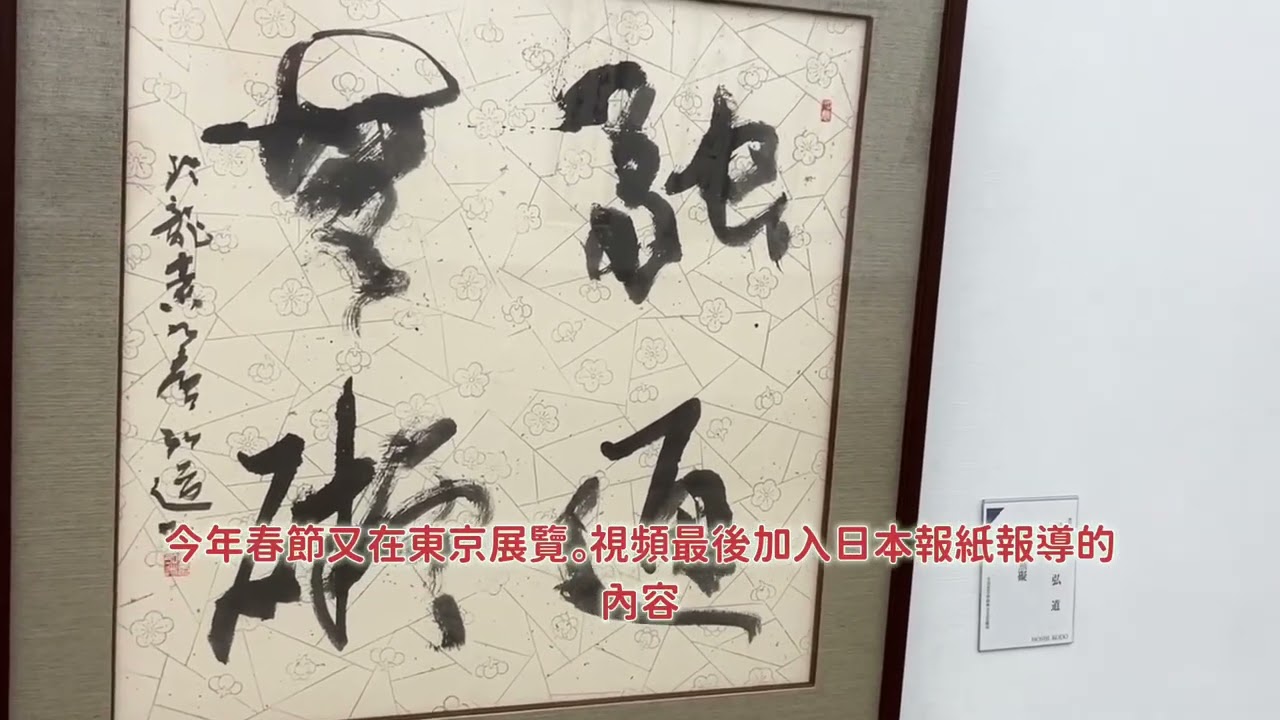 融通
無礙
弘道
今年春節又在東京展覽。視頻最後加入日本報紙報導的
內容
弘道
HOSHI KODO